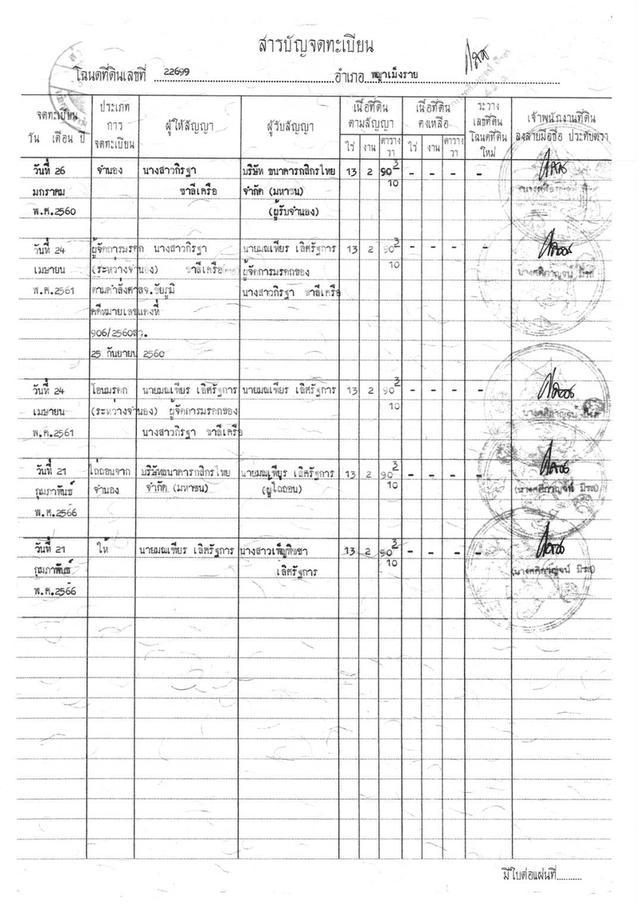 สารบัญจดทะเบียน
โฉนดที่ดินเลขที่ 22699 อำเภอ พญาเม็งราย
จดทะเบียน วัน เดือน ปี
ประเภท การ จดทะเบียน
ผู้ให้สัญญา
ผู้รับสัญญา
เนื้อที่ดิน ตามสัญญา
ไร่ งาน ตารางวา
เนื้อที่ดิน คงเหลือ
ไร่ งาน ตารางวา
ระวาง เลขที่ดิน โฉนดที่ดิน ใหม่
เจ้าพนักงานที่ดิน ลงลายมือชื่อ ประทับตรา
วันที่ 26 จำนอง นางสาวกิรฐา บริษัท ธนาคารกสิกรไทย 13 2 90 3/10 - - - -
มกราคม ชาลีเครือ จำกัด (มหาชน)
พ.ศ.2560 (ผู้รับจำนอง)
วันที่ 24 ผู้จัดการมรดก นางสาวกิรฐา นายมณเฑียร เลิศรัฐการ 13 2 90 3/10 - - - -
เมษายน (ระหว่างจำนอง) ชาลีเครือ ผู้จัดการมรดกของ
พ.ศ.2561 ตามคำสั่งศาลจ.ชัยภูมิ นางสาวกิรฐา ชาลีเครือ
คดีหมายเลขแดงที่
906/2560
25 กันยายน 2560
วันที่ 24 โอนมรดก นายมณเฑียร เลิศรัฐการ นายมณเฑียร เลิศรัฐการ 13 2 90 3/10 - - - -
เมษายน (ระหว่างจำนอง) ผู้จัดการมรดกของ
พ.ศ.2561 นางสาวกิรฐา ชาลีเครือ
วันที่ 21 ไถ่ถอนจาก บริษัทธนาคารกสิกรไทย นายมณเฑียร เลิศรัฐการ 13 2 90 3/10 - - - -
กุมภาพันธ์ จำนอง จำกัด (มหาชน) (ผู้ไถ่ถอน)
พ.ศ.2566
วันที่ 21 ให้ นายมณเฑียร เลิศรัฐการ นางสาวเพ็ญพิชชา 13 2 90 3/10 - - - -
กุมภาพันธ์ เลิศรัฐการ
พ.ศ.2566
มีใบต่อแผ่นที่...........